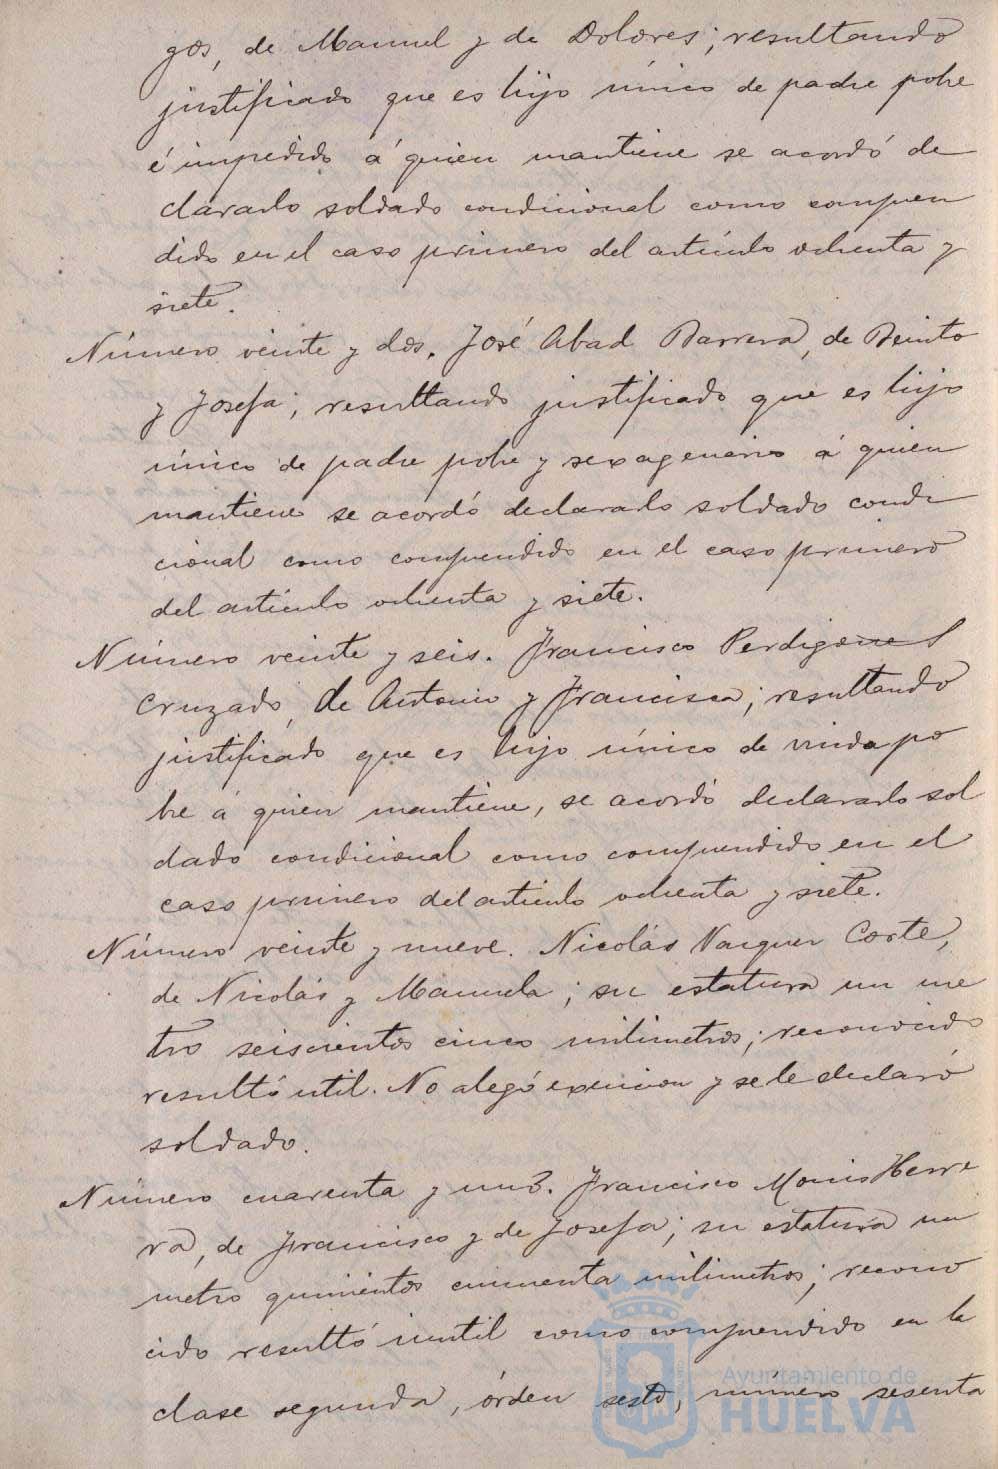 gos, de Manuel y de Dolores; resultando
justificado que es hijo único de padre pobre
é impedido á quien mantiene se acordó de
clararlo soldado condicional como compren
dido en el caso primero del artículo ochenta y
siete.
Número veinte y dos. José Abad Barrera, de Benito
y Josefa; resultando justificado que es hijo
único de padre pobre y sexagenario á quien
mantiene se acordó declararlo soldado condi
cional como comprendido en el caso primero
del artículo ochenta y siete.
Número veinte y seis. Francisco Perdigones
Cruzado, de Antonio y Francisca; resultando
justificado que es hijo único de viuda po
bre á quien mantiene, se acordó declararlo sol
dado condicional como comprendido en el
caso primero del artículo ochenta y siete.
Número veinte y nueve. Nicolás Vazquez Corte,
de Nicolás y Manuela; su estatura un me
tro seiscientos cinco milimetros; reconocido
resultó util. No alegó exencion y se le declaró
soldado.
Número cuarenta y uno. Francisco Moris Herre
ra, de Francisco y de Josefa; su estatura un
metro quinientos cincuenta milimetros; recono
cido resultó inutil como comprendido en la
clase segunda, órden sesto, número sesenta
Ayuntamiento de
HUELVA